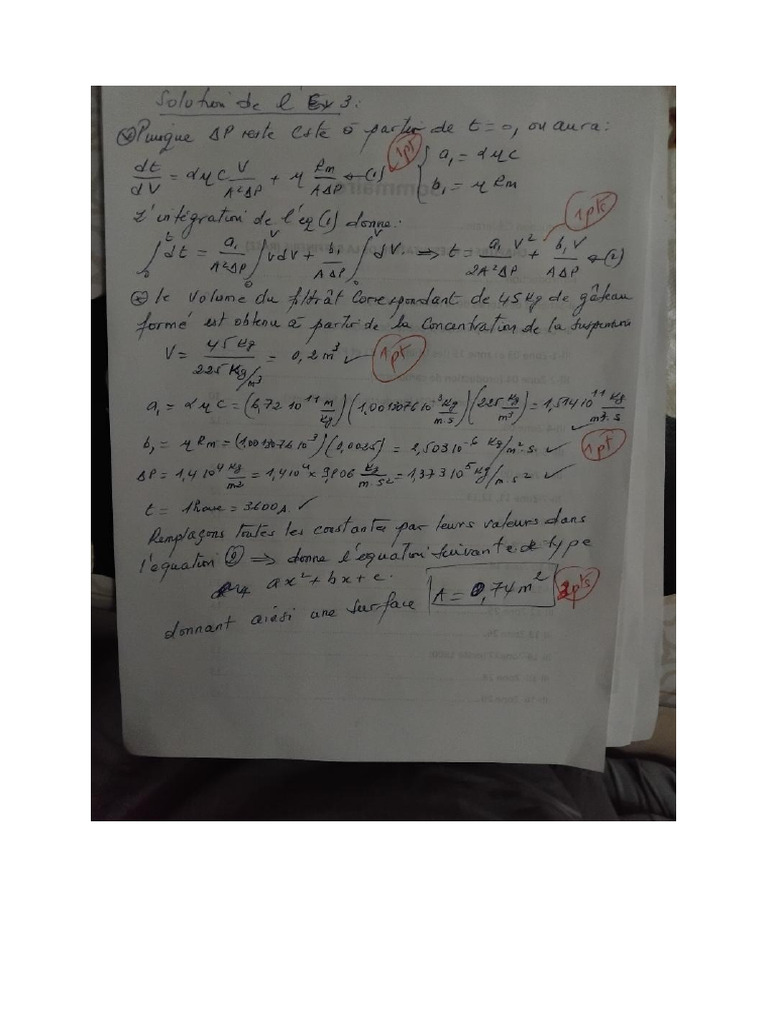 Solution de l'Ex 3:
Puisque ΔP reste Cste à partir de t=0, on aura:
dt/dV = αηC V/A²ΔP + η Rm/AΔP ← (1) { a₁ = αηC
b₁ = η Rm
1pt
L'intégration de l'éq (1) donne:
1pts
∫₀ᵗ dt = a₁/A²ΔP ∫₀ⱽ VdV + b₁/AΔP ∫₀ⱽ dV. ⟹ t = a₁V²/2A²ΔP + b₁V/AΔP ← (2)
le volume du filtrât Correspondant de 45Kg de gâteau
formé est obtenu à partir de la Concentration de la suspension
V = 45 Kg / 225 Kg/m³ = 0,2 m³ ✓ 1pt
a₁ = αηC = (6,72 10¹¹ m/Kg)(1,0013076 10⁻³ Kg/m.s)(225 Kg/m³) = 1,514 10¹¹ Kg/m³.s ✓
b₁ = η Rm = (1,0013076 10⁻³)(0,0025) = 2,503 10⁻⁶ Kg/m².s ✓ 1pt
ΔP = 1,4 10⁴ Kg/m² = 1,4 10⁴ × 9,806 Kg/m.s² = 1,373 10⁵ Kg/m.s² ✓
t = 1 heure = 3600 s. ✓
Remplaçons toutes les constantes par leurs valeurs dans
l'equation (2) ⟹ donne l'equation suivante de type
ax² + bx + c.
donnant ainsi une surface A = 0,74 m² 2pts